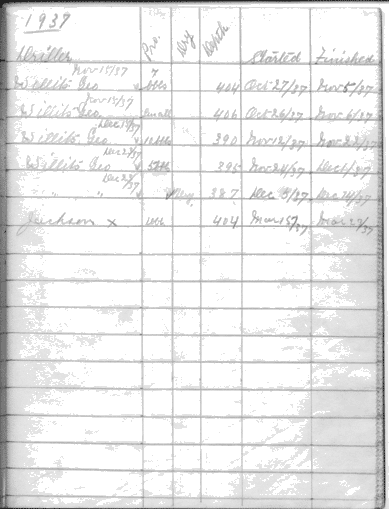 1937
Driller Pro. Dry Depth Started Finished
Nov 15/37 7
Willits Geo bbls 404 Oct 27/37 Nov 5/37
Nov 15/37
Willits Geo. Small 406 Oct 26/37 Nov 6/37
Dec 15/37
Willits Geo 390 Nov 12/37 Nov 23/37
Dec 23/37
Willits Geo 395 Nov 24/37 Dec 1/37
Dec 23/37
" " " Dry 387 Dec 5/37
Jackson x 404 27/37